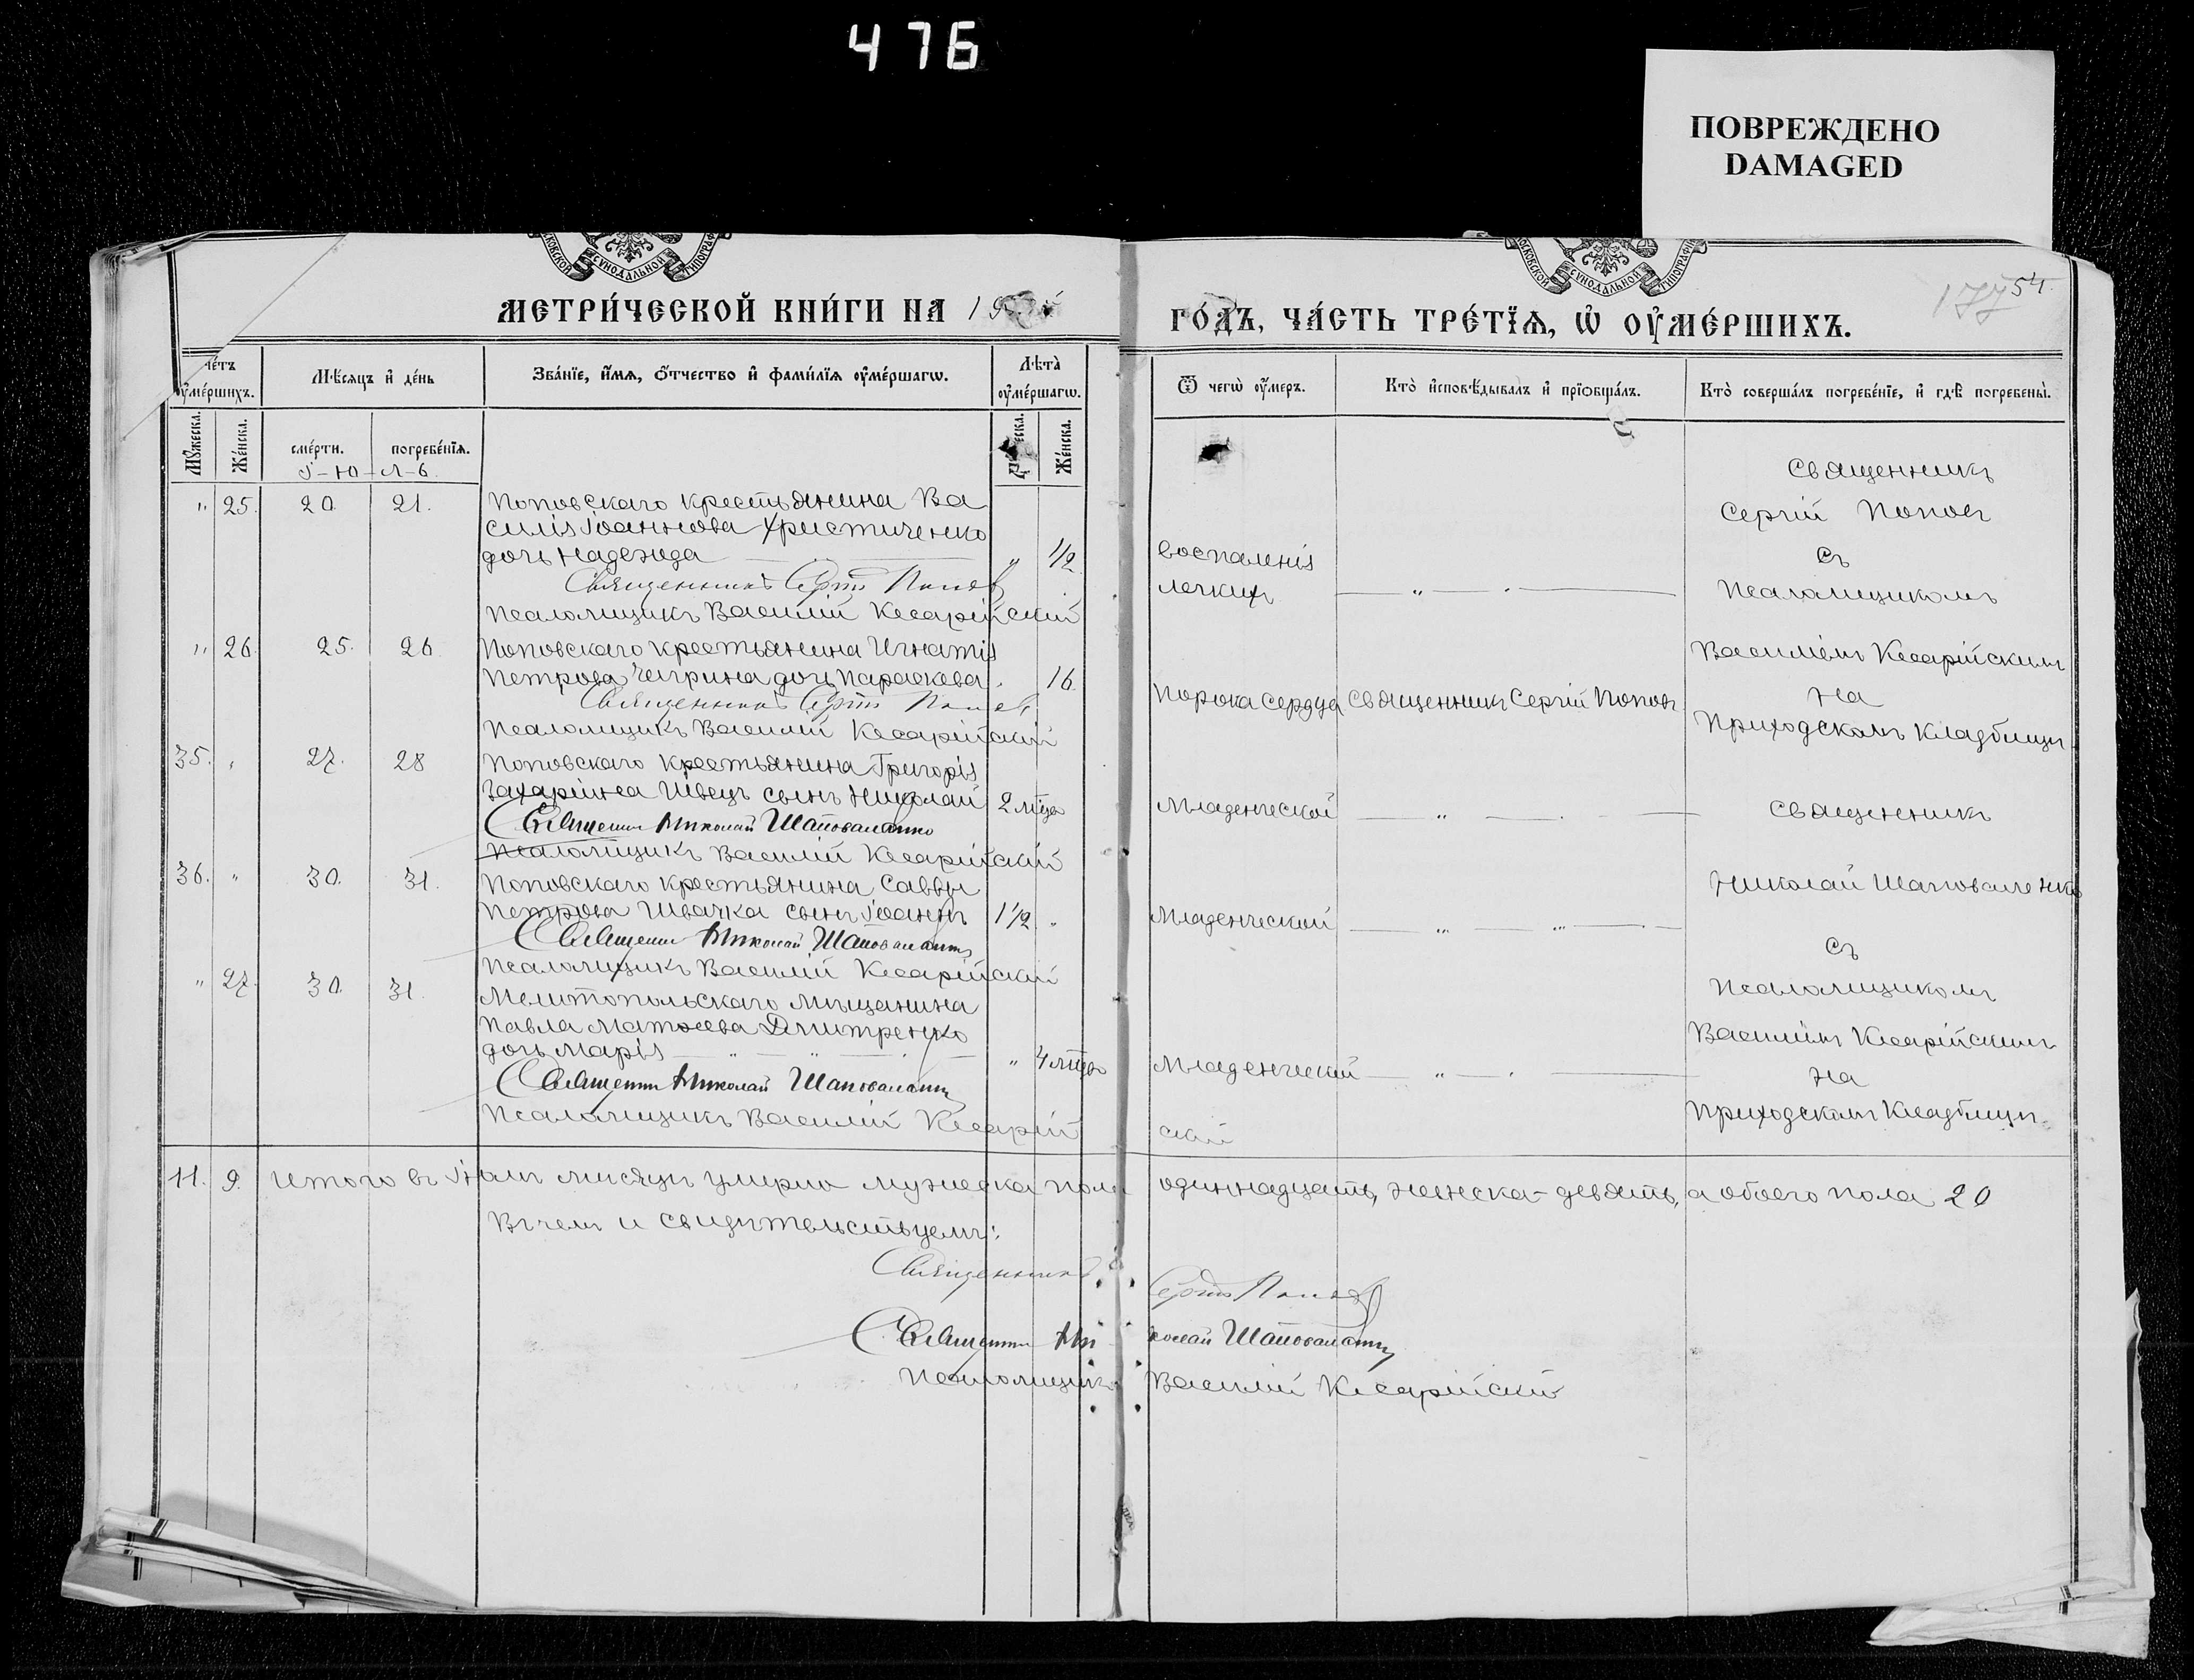 476
ПОВРЕЖДЕНО
DAMAGED
МОСКОВСКОЙ СУНОДАЛЬНОЙ ТИПОГРАФІ
МОСКОВСКОЙ СУНОДАЛЬНОЙ ТИПОГРАФІ
177 54.
МЕТРИ́ЧЕСКОЙ КНИ́ГИ НА 19
ГО́ДЪ, ЧА́СТЬ ТРЕ́ТЇѦ, Ѡ҆ ОУ҆МЕ́РШИХЪ.
че́тъ оу҆ме́ршихъ.
Мѣ́сяцъ и҆ де́нь
Зва́нїе, и҆́мѧ, ѻ҆́тчество и҆ фами́лїѧ оу҆ме́ршагѡ.
Лѣта̀ оу҆ме́ршагѡ.
Ѿ чегѡ̀ оу҆́меръ.
Кто̀ и҆сповѣ́дывалъ и҆ прїѻбща́лъ.
Кто̀ соверша́лъ погребе́нїе, и҆ гдѣ̀ погребены̀.
Мꙋ́жеска.
Же́нска.
сме́рти.
погребе́нїѧ.
Же́нска.
І-Ю-Л-Ь
" 25. 20. 21. Поповскаго крестьянина Ва
силія Іоаннова Христиченко
дочь Надежда " 1/2.
Священникъ Сергій Поповъ
Псаломщикъ Василій Кесарійскій
воспаленія
легкихъ
Священникъ
Сергій Поповъ
съ
Псаломщикомъ
Василіемъ Кесарійскимъ
на
Приходскомъ кладбищѣ
" 26. 25. 26 Поповскаго крестьянина Игнатія
Петрова Чегрина дочь Параскева. 16.
Священникъ Сергій Поповъ
Псаломщикъ Василій Кесарійскій
Порока сердца Священникъ Сергій Поповъ
35. " 27. 28 Поповскаго крестьянина Григорія
Захаріина Швецъ сынъ Николай 2 мѣсяц
Священникъ Николай Шаповаленко
Псаломщикъ Василій Кесарійскій
Младенческой
Священникъ
Николай Шаповаленко
съ
Псаломщикомъ
Василіемъ Кесарійскимъ
на
Приходскомъ Кладбищѣ
36. " 30. 31. Поповскаго крестьянина Саввы
Петрова Швачка сынъ Іоаннъ 1 1/2 "
Священникъ Николай Шаповаленко
Псаломщикъ Василій Кесарійскій
Младенческой
" 27. 30. 31. Мелитопольскаго мѣщанина
Павла Матѳеева Дмитренко
дочь Марія " 4 мѣсяц
Священникъ Николай Шаповаленко
Псаломщикъ Василій Кесарійскій
Младенческой
11. 9. Итого въ Іюлѣ мѣсяцѣ умерло мужеска пола одиннадцать, женска - девять, а обоего пола 20
Въ чемъ и свидѣтельствуемъ:
Священникъ Сергій Поповъ
Священникъ Николай Шаповаленко
Псаломщикъ Василій Кесарійскій